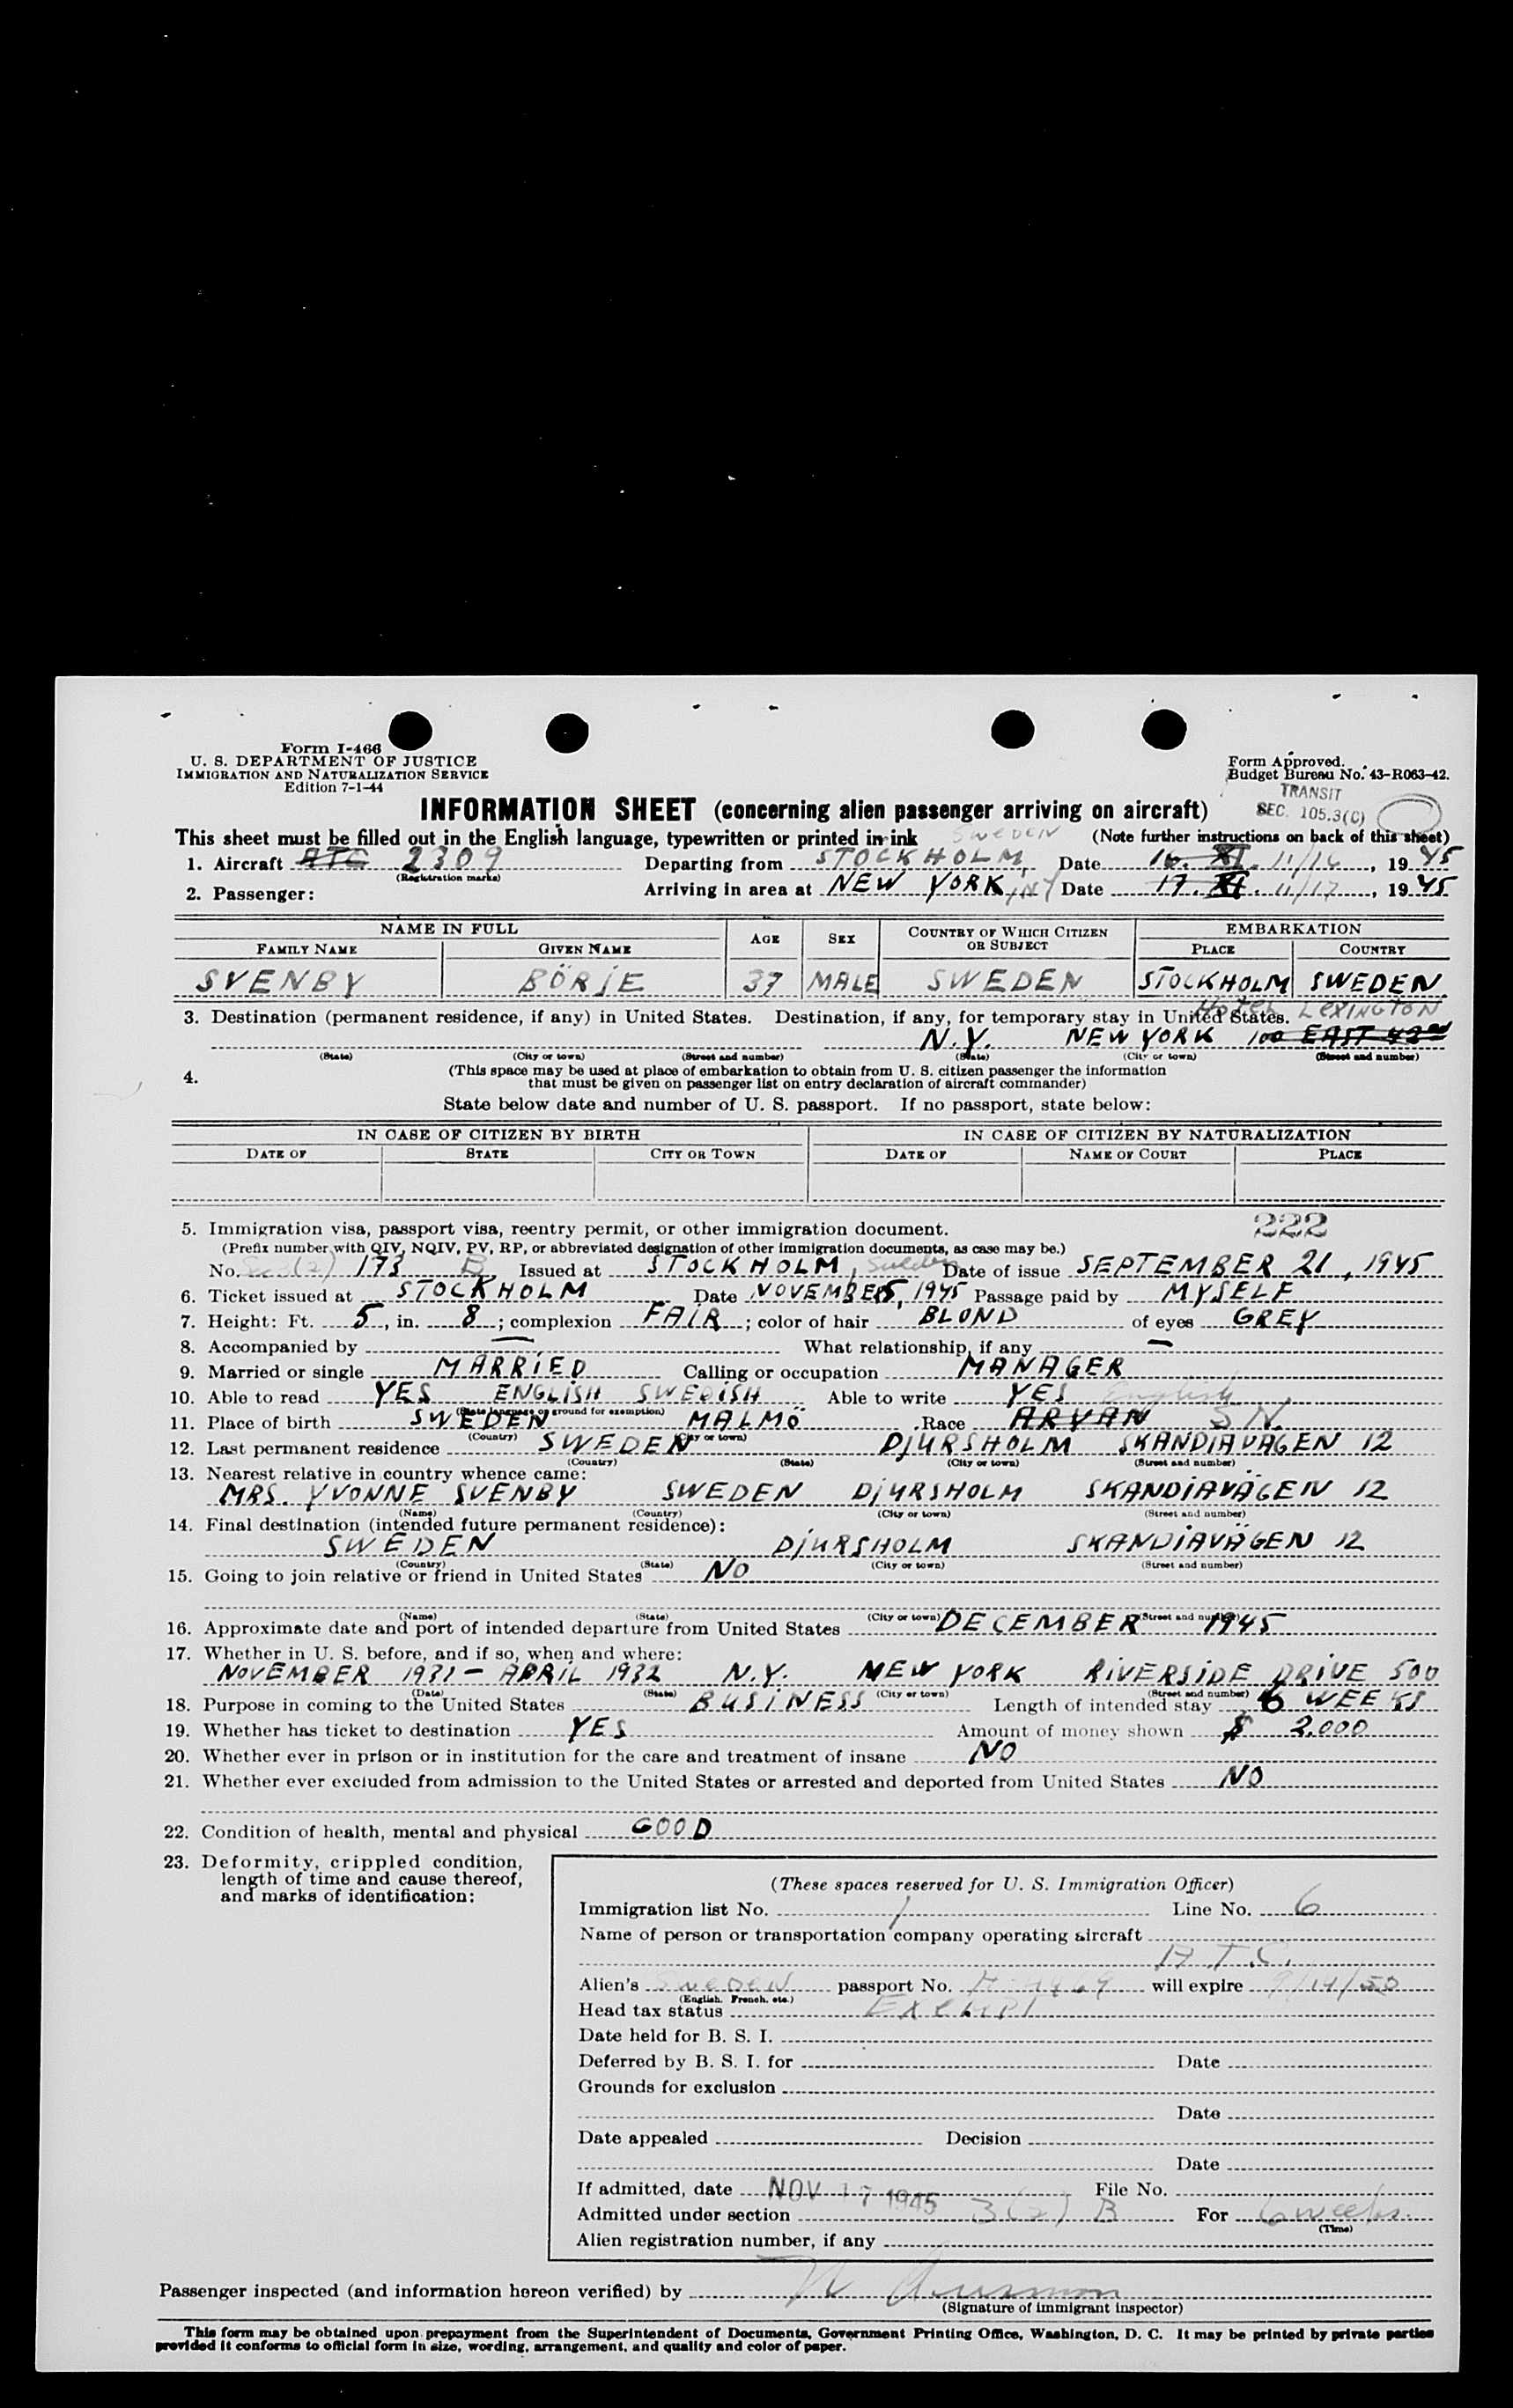 Form I-466
U. S. DEPARTMENT OF JUSTICE
IMMIGRATION AND NATURALIZATION SERVICE
Edition 7-1-44
Form Approved.
Budget Bureau No. 43-R063-42.
TRANSIT
SEC. 105.3(C)
INFORMATION SHEET (concerning alien passenger arriving on aircraft)
This sheet must be filled out in the English language, typewritten or printed in ink (Note further instructions on back of this sheet)
SWEDEN
1. Aircraft ATC 2309 Departing from STOCKHOLM, Date 16. XI. 11/16, 1945
(Registration marks)
2. Passenger: Arriving in area at NEW YORK, NY Date 17. XI. 11/17, 1945
NAME IN FULL AGE SEX COUNTRY OF WHICH CITIZEN OR SUBJECT EMBARKATION
FAMILY NAME GIVEN NAME PLACE COUNTRY
SVENBY BÖRJE 37 MALE SWEDEN STOCKHOLM SWEDEN
3. Destination (permanent residence, if any) in United States. Destination, if any, for temporary stay in United States.
Hotel LEXINGTON
N.Y. NEW YORK 100 EAST 42nd
(State) (City or town) (Street and number) (State) (City or town) (Street and number)
4. (This space may be used at place of embarkation to obtain from U. S. citizen passenger the information
that must be given on passenger list on entry declaration of aircraft commander)
State below date and number of U. S. passport. If no passport, state below:
IN CASE OF CITIZEN BY BIRTH IN CASE OF CITIZEN BY NATURALIZATION
DATE OF STATE CITY OR TOWN DATE OF NAME OF COURT PLACE
5. Immigration visa, passport visa, reentry permit, or other immigration document. 222
(Prefix number with QIV, NQIV, PV, RP, or abbreviated designation of other immigration documents, as case may be.)
No. Sec 3(2) 173 B Issued at STOCKHOLM, Sweden Date of issue SEPTEMBER 21, 1945
6. Ticket issued at STOCKHOLM Date NOVEMBER 5, 1945 Passage paid by MYSELF
7. Height: Ft. 5, in. 8; complexion FAIR; color of hair BLOND of eyes GREY
8. Accompanied by — What relationship, if any —
9. Married or single MARRIED Calling or occupation MANAGER
10. Able to read YES ENGLISH SWEDISH Able to write YES English
(State language or ground for exemption)
11. Place of birth SWEDEN MALMÖ Race ARYAN SN.
(Country) (City or town)
12. Last permanent residence SWEDEN DJURSHOLM SKANDIAVÄGEN 12
(Country) (State) (City or town) (Street and number)
13. Nearest relative in country whence came:
MRS. YVONNE SVENBY SWEDEN DJURSHOLM SKANDIAVÄGEN 12
(Name) (Country) (City or town) (Street and number)
14. Final destination (intended future permanent residence):
SWEDEN DJURSHOLM SKANDIAVÄGEN 12
(Country) (State) (City or town) (Street and number)
15. Going to join relative or friend in United States NO
(Name) (State) (City or town) (Street and number)
16. Approximate date and port of intended departure from United States DECEMBER 1945
17. Whether in U. S. before, and if so, when and where:
NOVEMBER 1931 - APRIL 1932 N.Y. NEW YORK RIVERSIDE DRIVE 500
(Date) (State) (City or town) (Street and number)
18. Purpose in coming to the United States BUSINESS Length of intended stay 6 WEEKS
19. Whether has ticket to destination YES Amount of money shown $ 2.000
20. Whether ever in prison or in institution for the care and treatment of insane NO
21. Whether ever excluded from admission to the United States or arrested and deported from United States NO
22. Condition of health, mental and physical GOOD
23. Deformity, crippled condition,
length of time and cause thereof,
and marks of identification:
(These spaces reserved for U. S. Immigration Officer)
Immigration list No. 1 Line No. 6
Name of person or transportation company operating aircraft
A.T.C.
Alien's SWEDEN passport No. will expire 9/14/50
(English, French, etc.)
Head tax status Exempt
Date held for B. S. I.
Deferred by B. S. I. for Date
Grounds for exclusion
Date
Date appealed Decision
Date
If admitted, date NOV 17 1945 File No.
Admitted under section 3(2) B For 6 weeks.
(Time)
Alien registration number, if any
Passenger inspected (and information hereon verified) by
(Signature of immigrant inspector)
This form may be obtained upon prepayment from the Superintendent of Documents, Government Printing Office, Washington, D. C. It may be printed by private parties
provided it conforms to official form in size, wording, arrangement, and quality and color of paper.